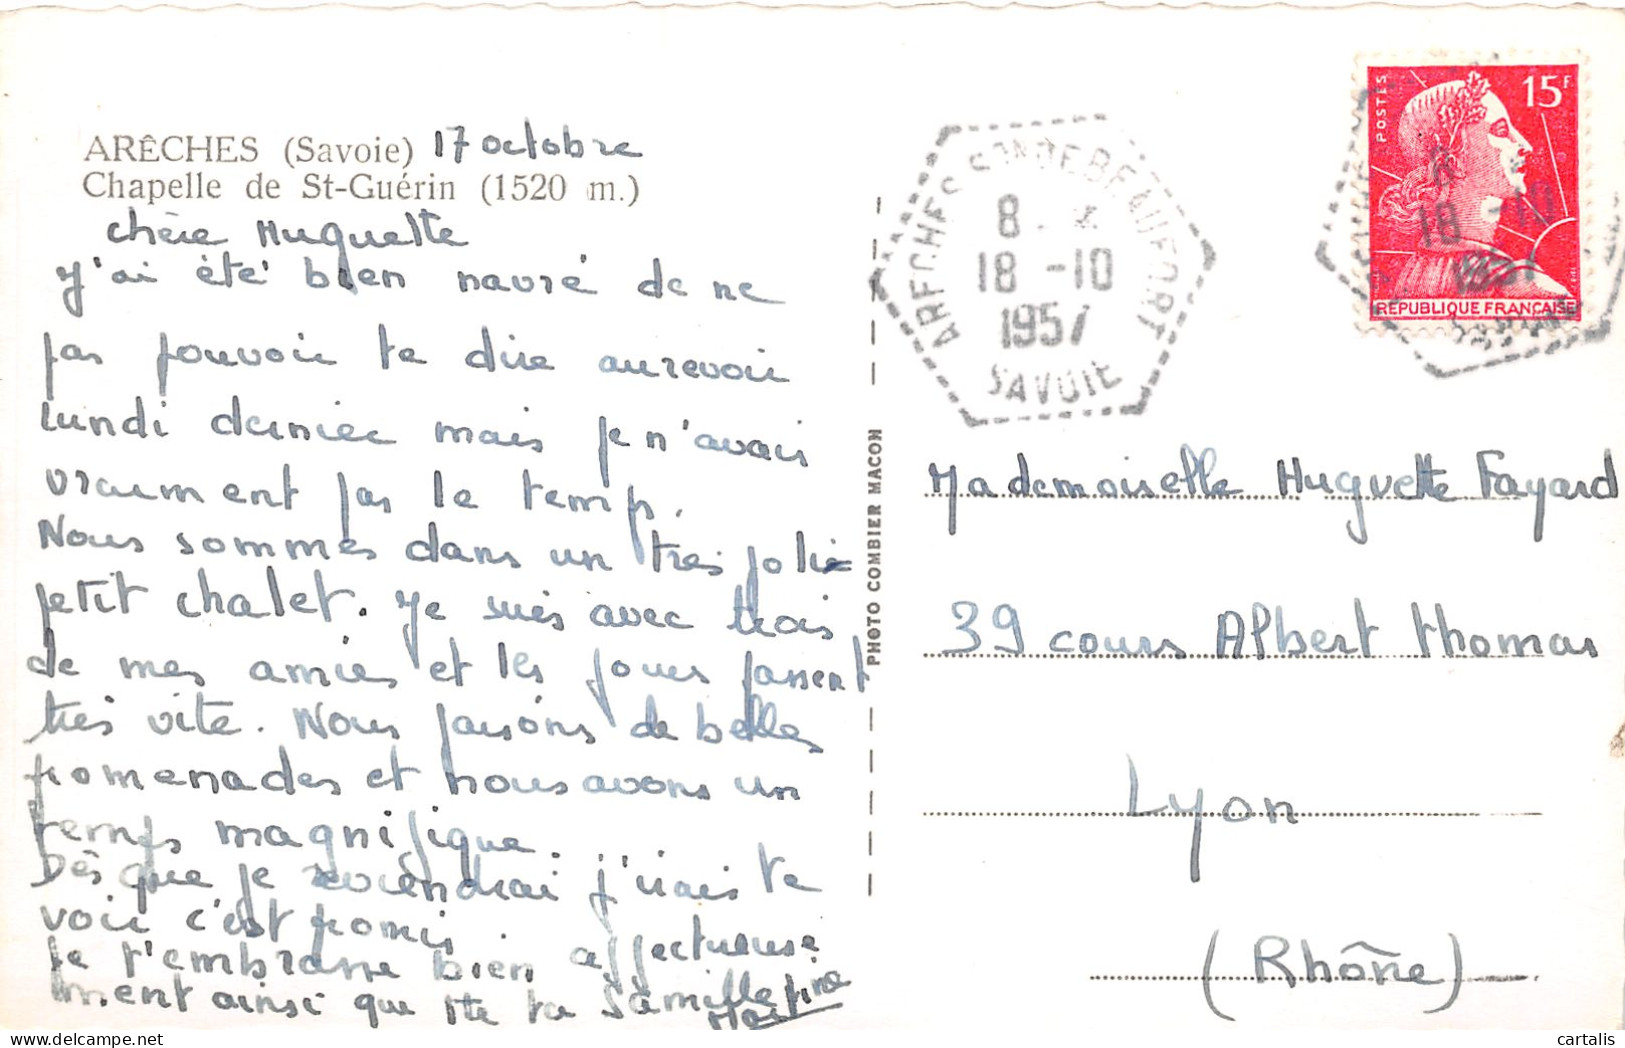 ARÊCHES (Savoie) 17 octobre
Chapelle de St-Guérin (1520 m.)
chère Huguette
J'ai été bien navré de ne
pas pouvoir te dire aurevoir
lundi dernier mais je n'avais
vraiment pas le temps.
Nous sommes dans un très joli
petit chalet. Je suis avec trois
de mes amies et les jours passent
très vite. Nous faisons de belles
promenades et nous avons un
temps magnifique.
Dès que je reviendrai j'irais te
voir c'est promis.
Je t'embrasse bien affectueuse
ment ainsi que tte ta famille
Martine
PHOTO COMBIER MACON
ARECHES SON DE BEAUFORT
8
18 -10
1957
SAVOIE
POSTES
15F
RÉPUBLIQUE FRANÇAISE
8
18 -10
1957
Mademoiselle Huguette Fayard
39 cours Albert Thomas
Lyon
(Rhône)
cartalis